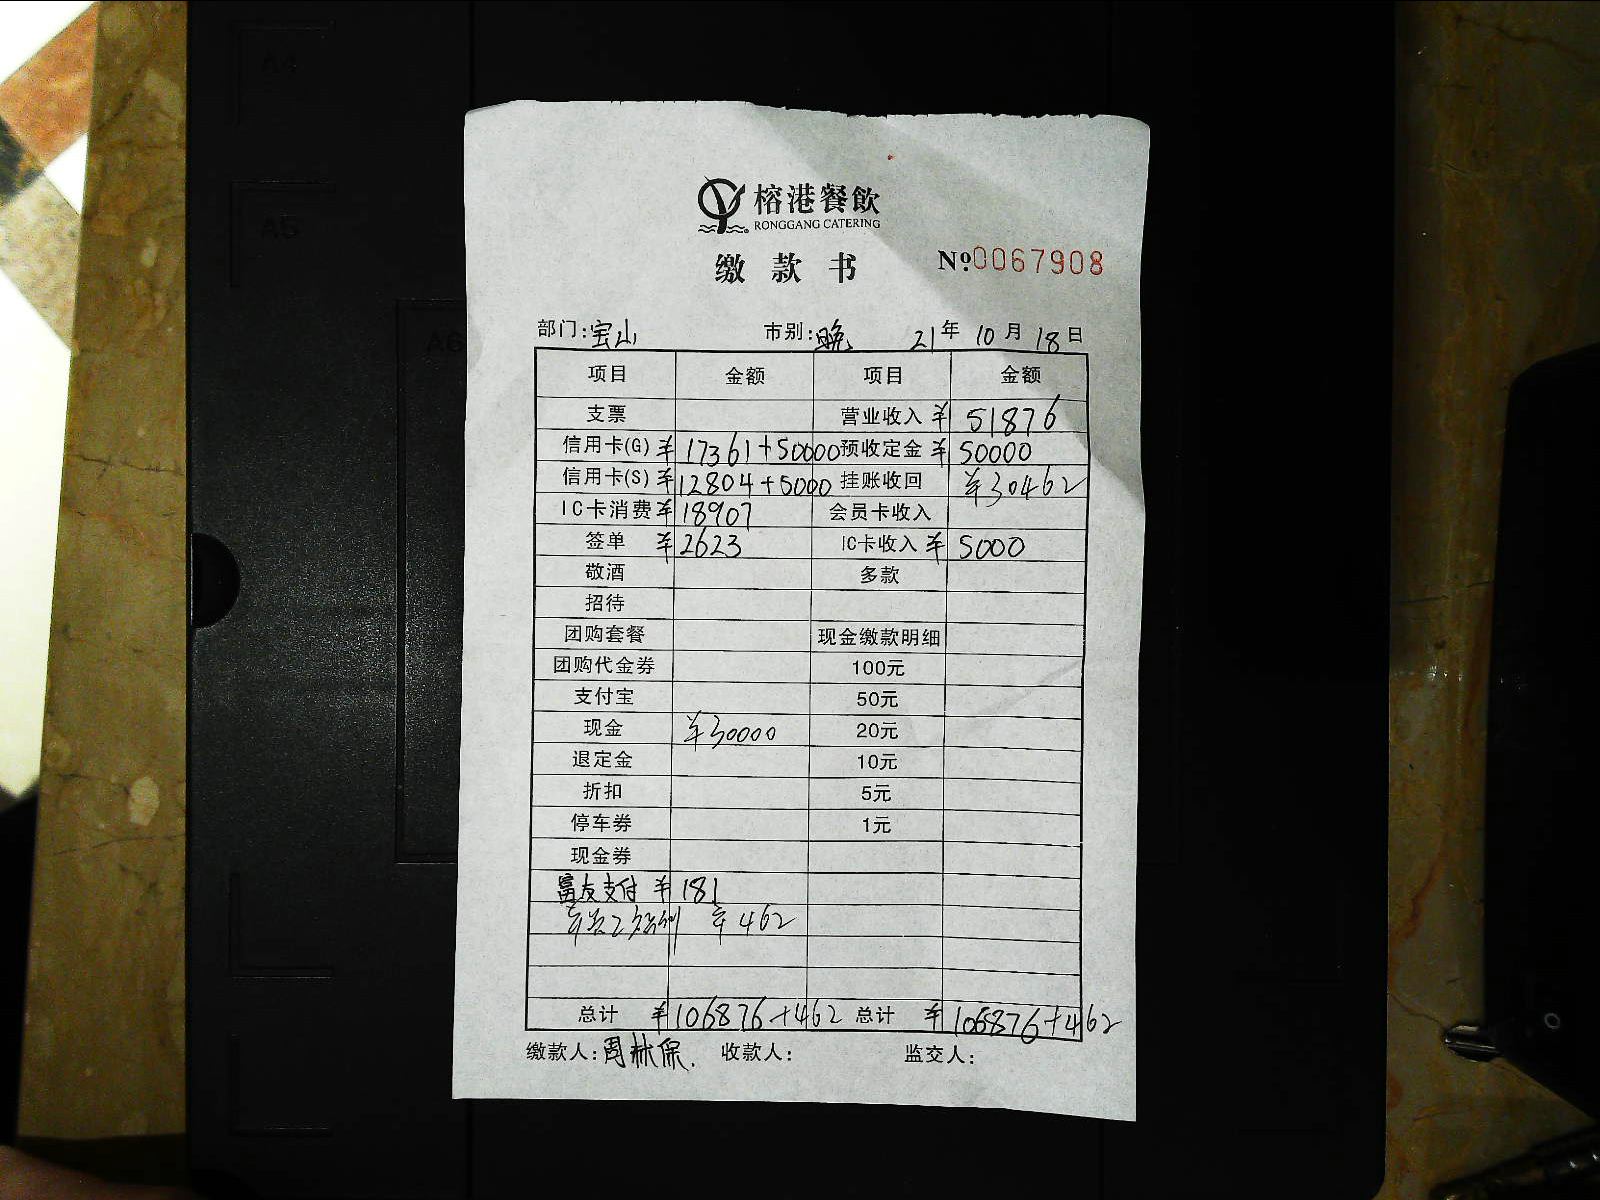 A4
A5
A6
榕港餐飲
RONGGANG CATERING
缴款书
Nº0067908
部门:宝山 市别:晚 21年 10月 18日
项目 金额 项目 金额
支票 营业收入 ¥ 51876
信用卡(G) ¥ 17361+50000 预收定金 ¥ 50000
信用卡(S) ¥ 12804+5000 挂账收回 ¥30462
IC卡消费 ¥ 18907 会员卡收入
签单 ¥ 2623 IC卡收入 ¥ 5000
敬酒 多款
招待
团购套餐 现金缴款明细
团购代金券 100元
支付宝 50元
现金 ¥30000 20元
退定金 10元
折扣 5元
停车券 1元
现金券
富友支付 ¥ 181
¥ 462
总计 ¥106876+462 总计 ¥ 106876+462
缴款人:周林保. 收款人: 监交人: